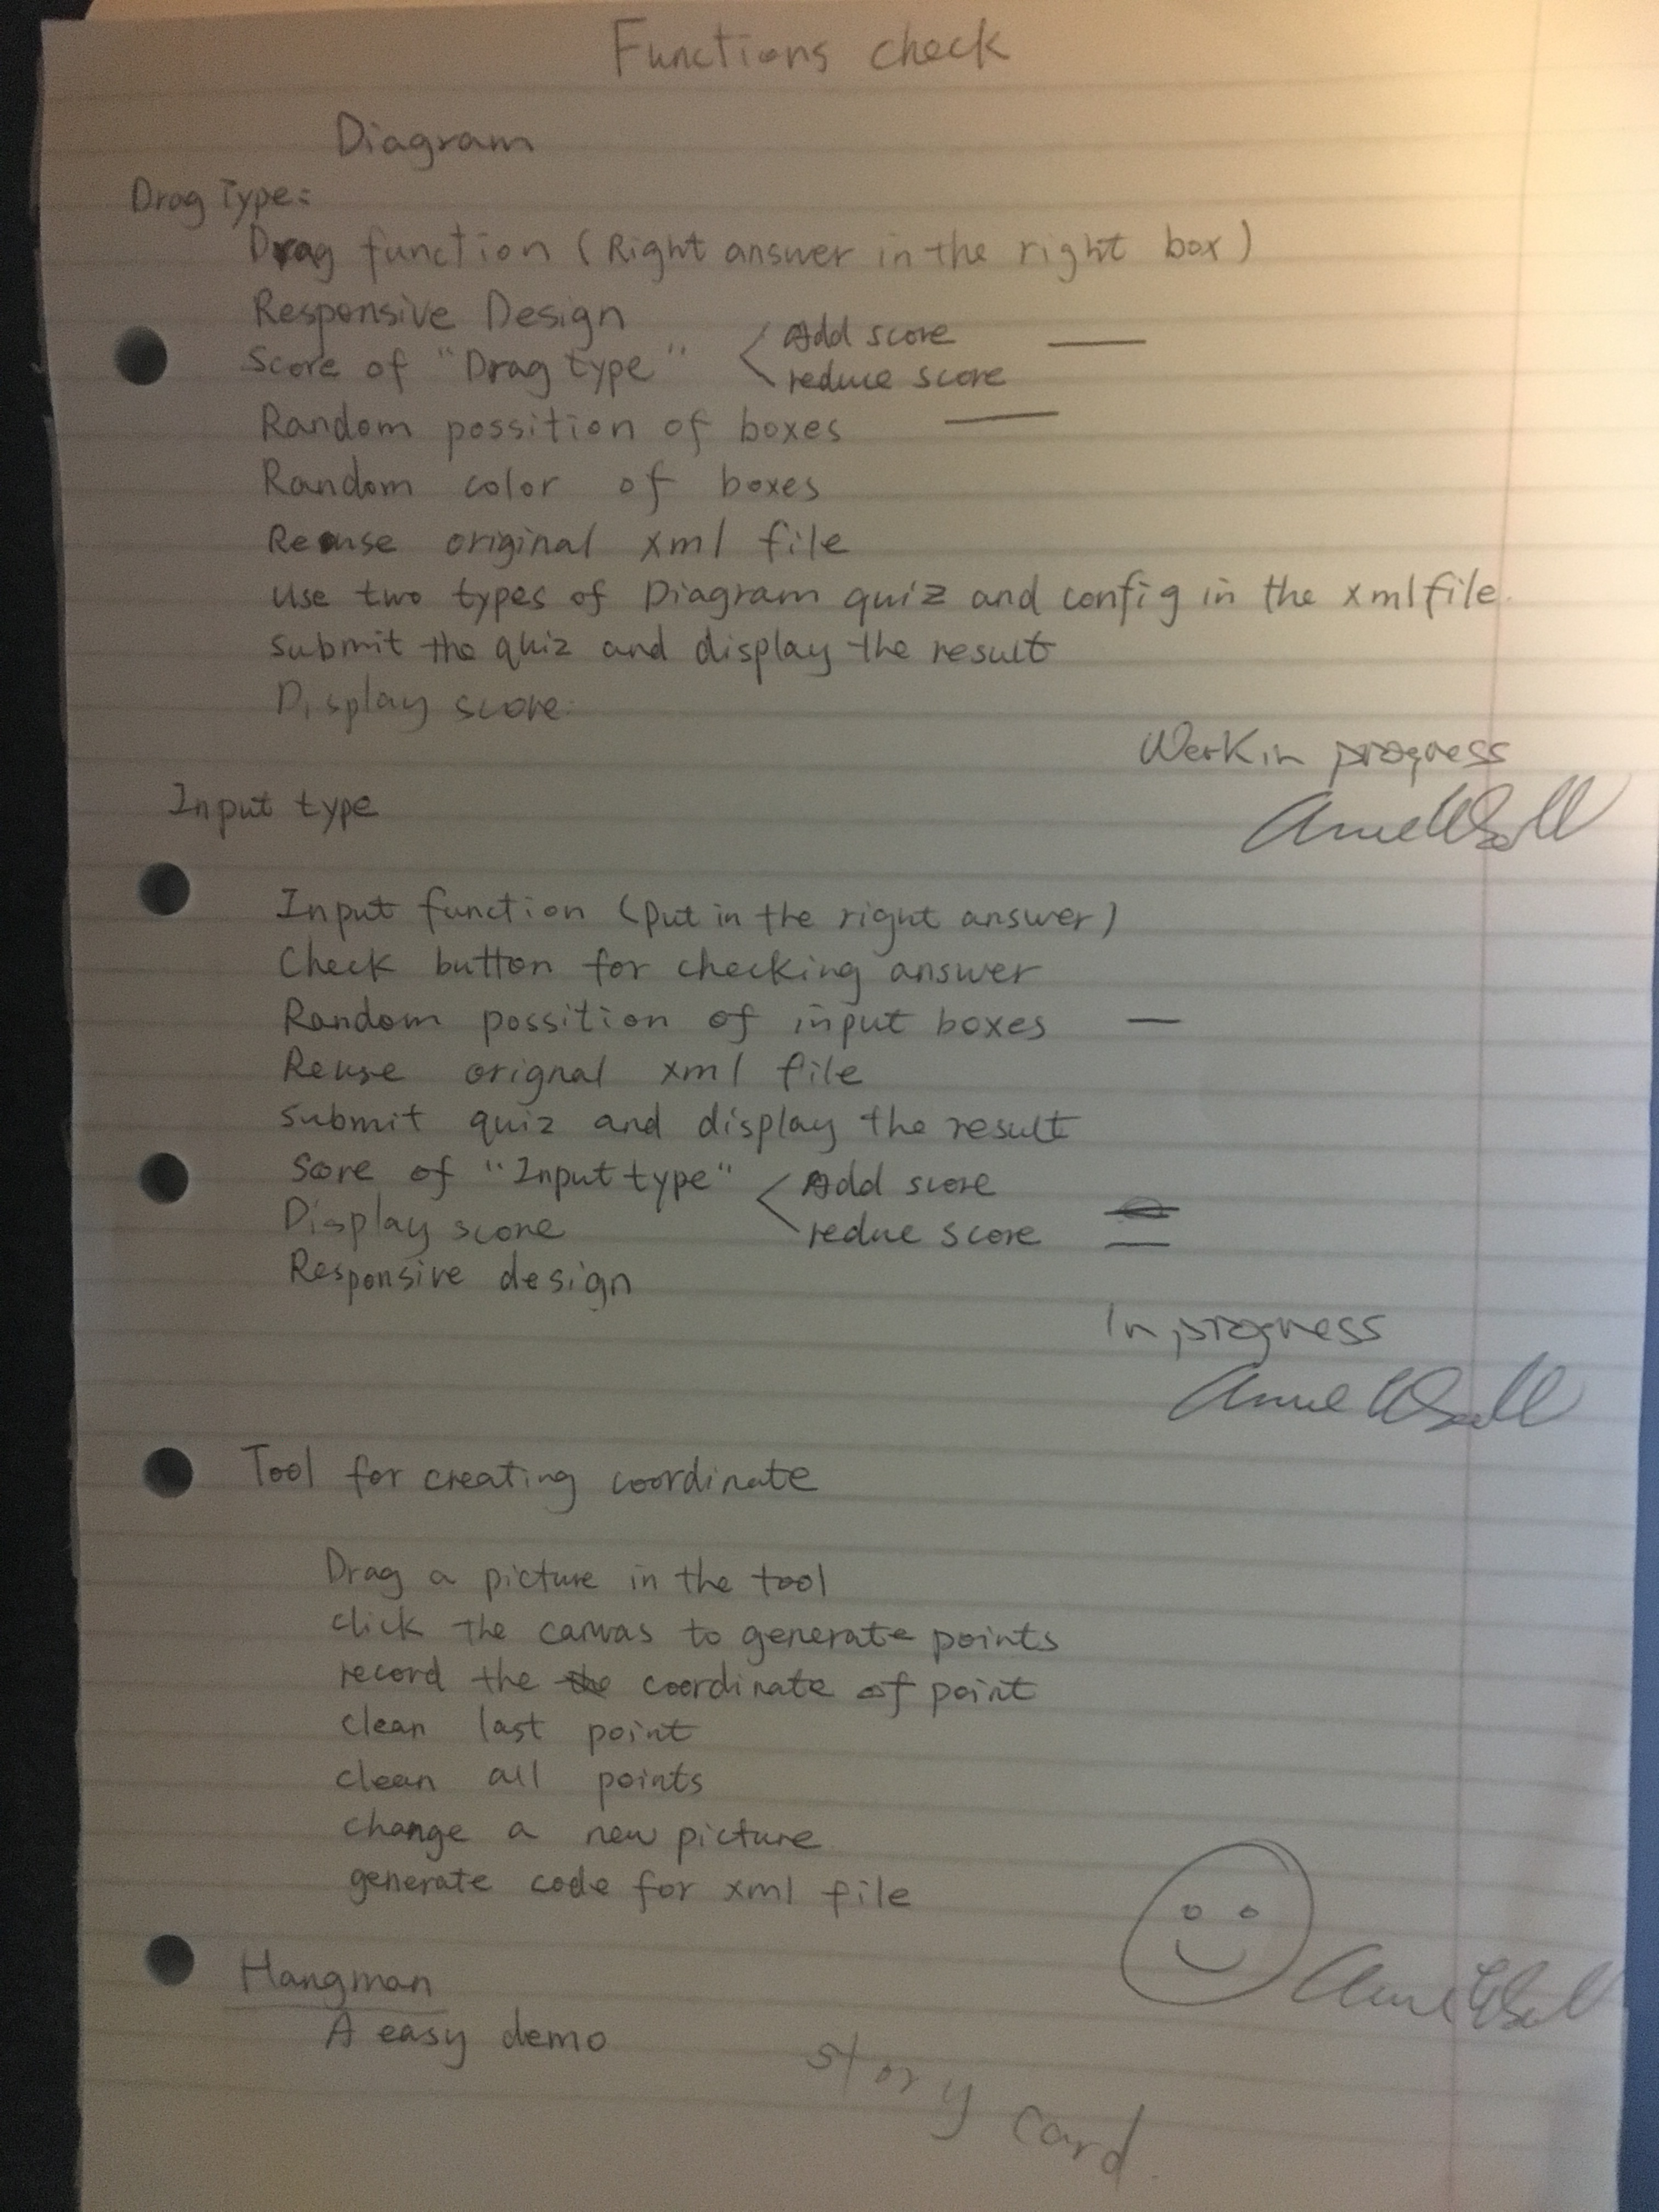 Functions check
Diagram
Drag Type:
Drag function (Right answer in the right box)
Responsive Design
Score of "Drag type" < Add score
reduce score
Random possition of boxes
Random color of boxes
Reuse original xml file
Use two types of Diagram quiz and config in the xml file.
submit the quiz and display the result
Display score.
Work in progress
Input type
Input function (Put in the right answer)
Check button for checking answer
Random possition of input boxes
Reuse orignal xml file
submit quiz and display the result
Score of "Input type" < Add score
redue score
Display score
Responsive design
In progress
Tool for creating coordinate
Drag a picture in the tool
click the canvas to generate points
record the the coordinate of point
clean last point
clean all points
change a new picture
generate code for xml file
Hangman
A easy demo
story card.